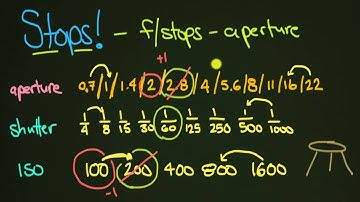 Stops! - f/stops - aperture
+1
aperture 0.7/1/1.4/2/2.8/4/5.6/8/11/16/22
shutter 1/4 1/8 1/15 1/30 1/60 1/125 1/250 1/500 1/1000
ISO 100 200 400 800 1600
-1